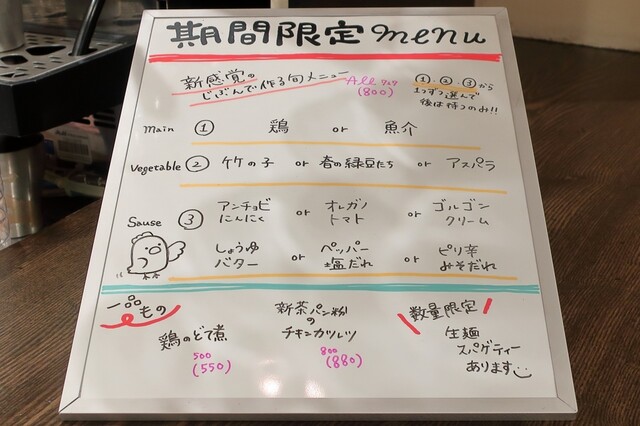 期間限定menu
新感覚の
じぶんで作る旬メニュー
All
(800)
①・②・③から
1つずつ選んで
後は待つのみ!!
main ① 鶏 or 魚介
Vegetable ② 竹の子 or 春の緑豆たち or アスパラ
Sause ③
アンチョビ
にんにく
or
オレガノ
トマト
or
ゴルゴン
クリーム
しょうゆ
バター
or
ペッパー
塩だれ
or
ピリ辛
みそだれ
一品もの
鶏のどて煮
500
(550)
新茶パン粉
の
チキンカツレツ
800
(880)
数量限定
生麺
スパゲティー
あります